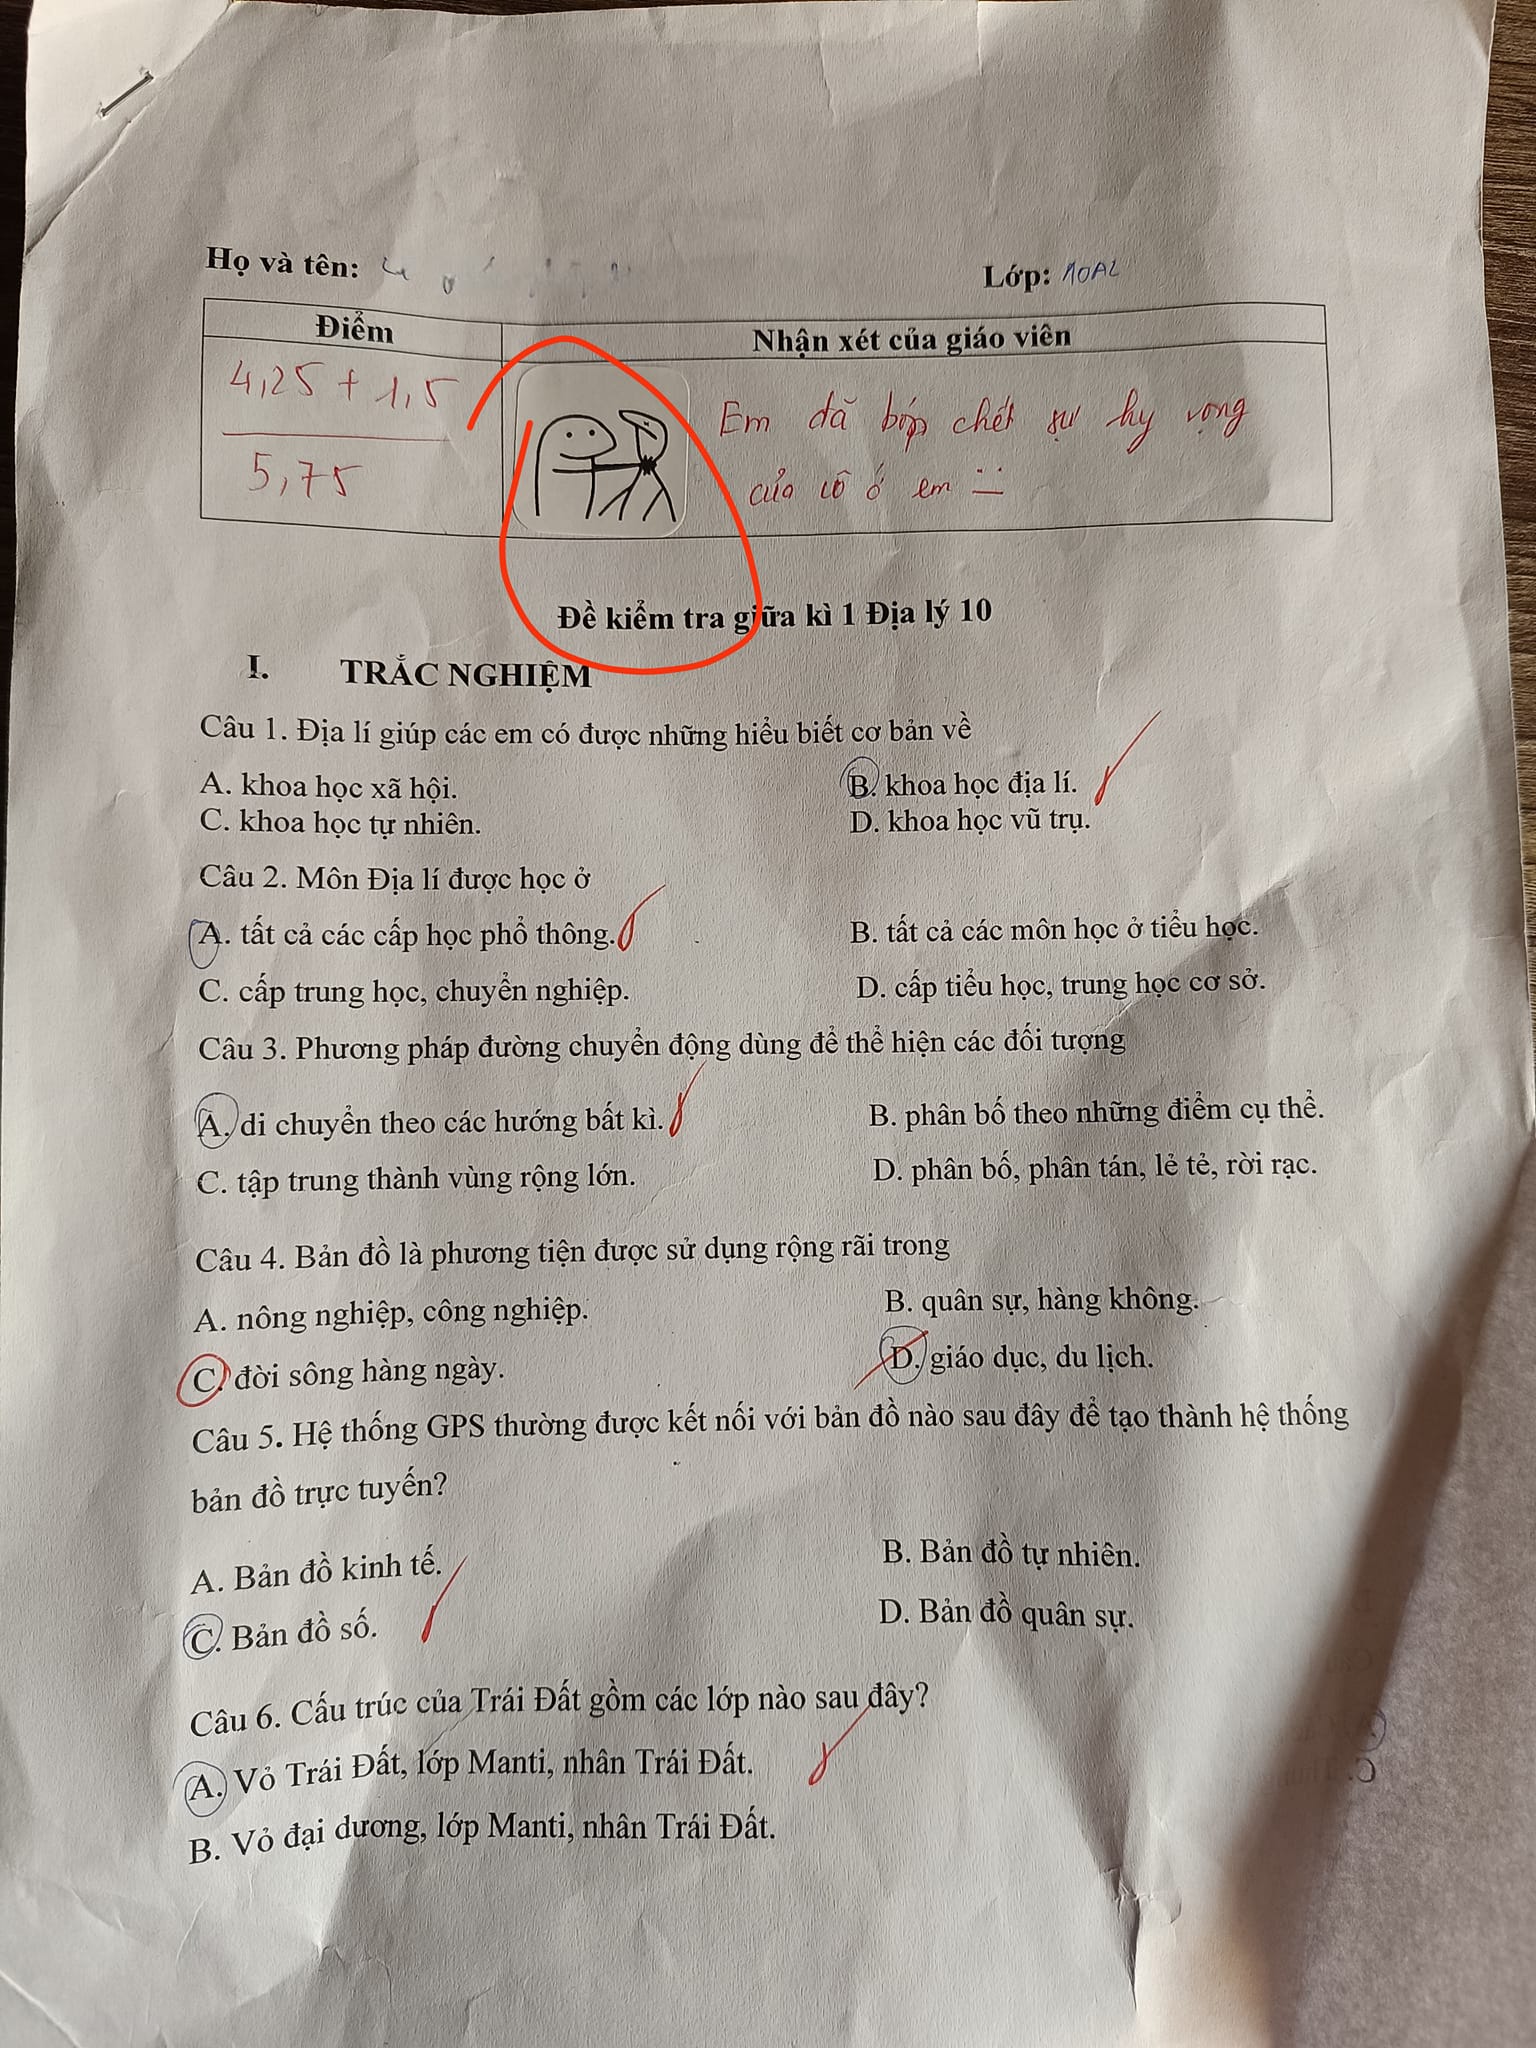 Họ và tên:
Lớp: 10A2
Điểm
Nhận xét của giáo viên
4,25 + 1,5
5,75
Em đã bóp chết sự hy vọng
của cô ở em
Đề kiểm tra giữa kì 1 Địa lý 10
I. TRẮC NGHIỆM
Câu 1. Địa lí giúp các em có được những hiểu biết cơ bản về
A. khoa học xã hội. B. khoa học địa lí.
C. khoa học tự nhiên. D. khoa học vũ trụ.
Câu 2. Môn Địa lí được học ở
A. tất cả các cấp học phổ thông. B. tất cả các môn học ở tiểu học.
C. cấp trung học, chuyển nghiệp. D. cấp tiểu học, trung học cơ sở.
Câu 3. Phương pháp đường chuyển động dùng để thể hiện các đối tượng
A. di chuyển theo các hướng bất kì. B. phân bố theo những điểm cụ thể.
C. tập trung thành vùng rộng lớn. D. phân bố, phân tán, lẻ tẻ, rời rạc.
Câu 4. Bản đồ là phương tiện được sử dụng rộng rãi trong
A. nông nghiệp, công nghiệp. B. quân sự, hàng không.
C. đời sông hàng ngày. D. giáo dục, du lịch.
Câu 5. Hệ thống GPS thường được kết nối với bản đồ nào sau đây để tạo thành hệ thống
bản đồ trực tuyến?
A. Bản đồ kinh tế. B. Bản đồ tự nhiên.
C. Bản đồ số. D. Bản đồ quân sự.
Câu 6. Cấu trúc của Trái Đất gồm các lớp nào sau đây?
A. Vỏ Trái Đất, lớp Manti, nhân Trái Đất.
B. Vỏ đại dương, lớp Manti, nhân Trái Đất.